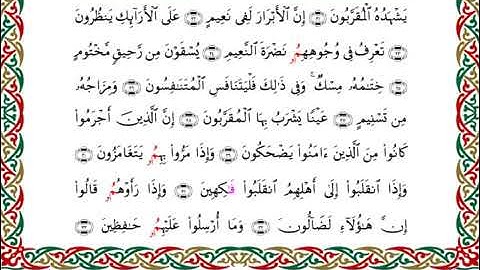 يَشْهَدُهُ ٱلْمُقَرَّبُونَ ۝٢١ إِنَّ ٱلْأَبْرَارَ لَفِى نَعِيمٍ ۝٢٢ عَلَى ٱلْأَرَآئِكِ يَنظُرُونَ
۝٢٣ تَعْرِفُ فِى وُجُوهِهِمُۥ نَضْرَةَ ٱلنَّعِيمِ ۝٢٤ يُسْقَوْنَ مِن رَّحِيقٍ مَّخْتُومٍ
۝٢٥ خِتَـٰمُهُۥ مِسْكٌ ۚ وَفِى ذَٰلِكَ فَلْيَتَنَافَسِ ٱلْمُتَنَـٰفِسُونَ ۝٢٦ وَمِزَاجُهُۥ
مِن تَسْنِيمٍ ۝٢٧ عَيْنًا يَشْرَبُ بِهَا ٱلْمُقَرَّبُونَ ۝٢٨ إِنَّ ٱلَّذِينَ أَجْرَمُوا۟
كَانُوا۟ مِنَ ٱلَّذِينَ ءَامَنُوا۟ يَضْحَكُونَ ۝٢٩ وَإِذَا مَرُّوا۟ بِهِمُۥ يَتَغَامَزُونَ ۝٣٠
وَإِذَا ٱنقَلَبُوٓا۟ إِلَىٰٓ أَهْلِهِمُ ٱنقَلَبُوا۟ فَـٰكِهِينَ ۝٣١ وَإِذَا رَأَوْهُمُۥ قَالُوٓا۟
إِنَّ هَـٰٓؤُلَآءِ لَضَآلُّونَ ۝٣٢ وَمَآ أُرْسِلُوا۟ عَلَيْهِمُۥ حَـٰفِظِينَ ۝٣٣